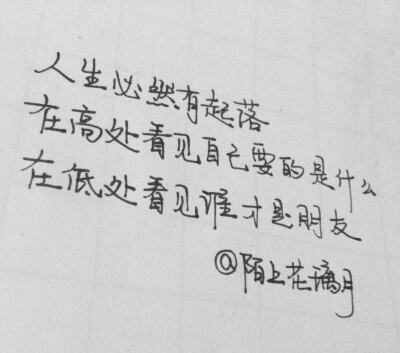 人生必然有起落
在高处看见自己要的是什么
在低处看见谁才是朋友
@陌上花璃月